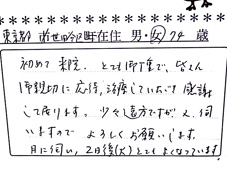 東京都 世田谷区 町在住 男・女 74 歳
初めて来院、とても御丁寧で、皆さん
御親切に応待、治療していただき感謝
して居ります。少々遠方ですが、又、伺
いますのでよろしくお願いします。
月に伺い、2日後(火)とてもよくなっています